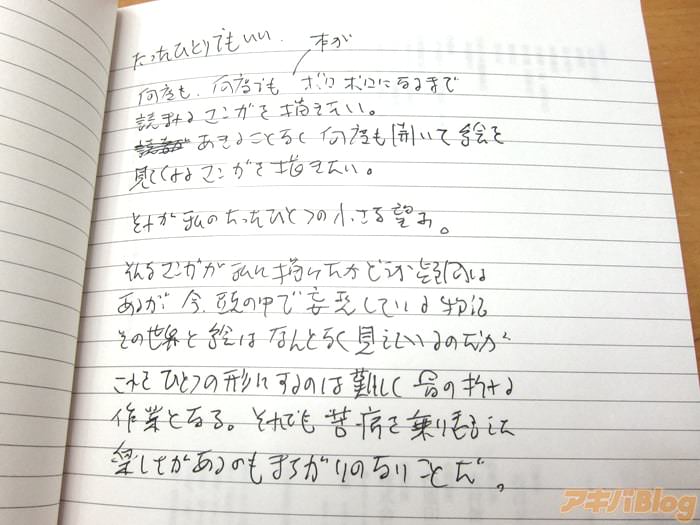 たったひとりでもいい.
本が
何度も、何度でも ボロボロになるまで
読まれるマンガを描きたい。
読者が あきることなく何度も開いて絵を
見てくれるマンガを描きたい。
それが私のたったひとつの小さな望み。
そんなマンガが私に描けたかどうか疑問は
あるが 今、頭の中で妄想している物語
その世界と絵はなんとなく見えているのだが
これをひとつの形にするのは難しく骨の折れる
作業となる。それでも苦痛を乗り越えた
楽しさがあるのもまちがいのないことだ。
アキバBlog